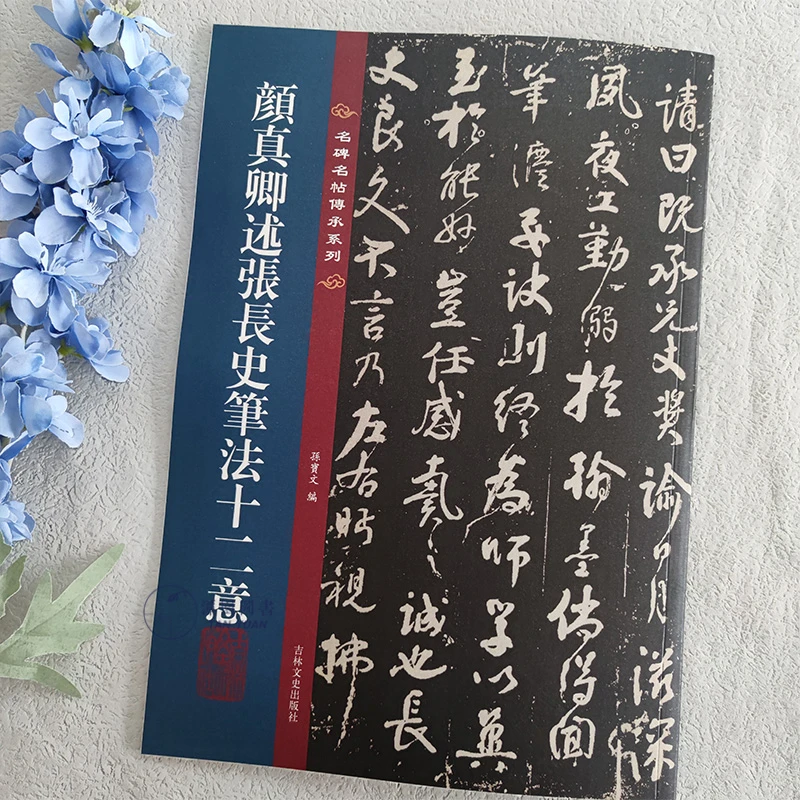 顔真卿述張長史筆法十二意
名碑名帖傳承系列
孫寶文 編
吉林文史出版社
請曰既承兄丈獎諭日月滋深
夙夜工勤溺於翰墨儻得聞
筆法要訣則終為師學以冀
至於能妙豈任感戴之誠也長
史良久不言乃左右眄視拂